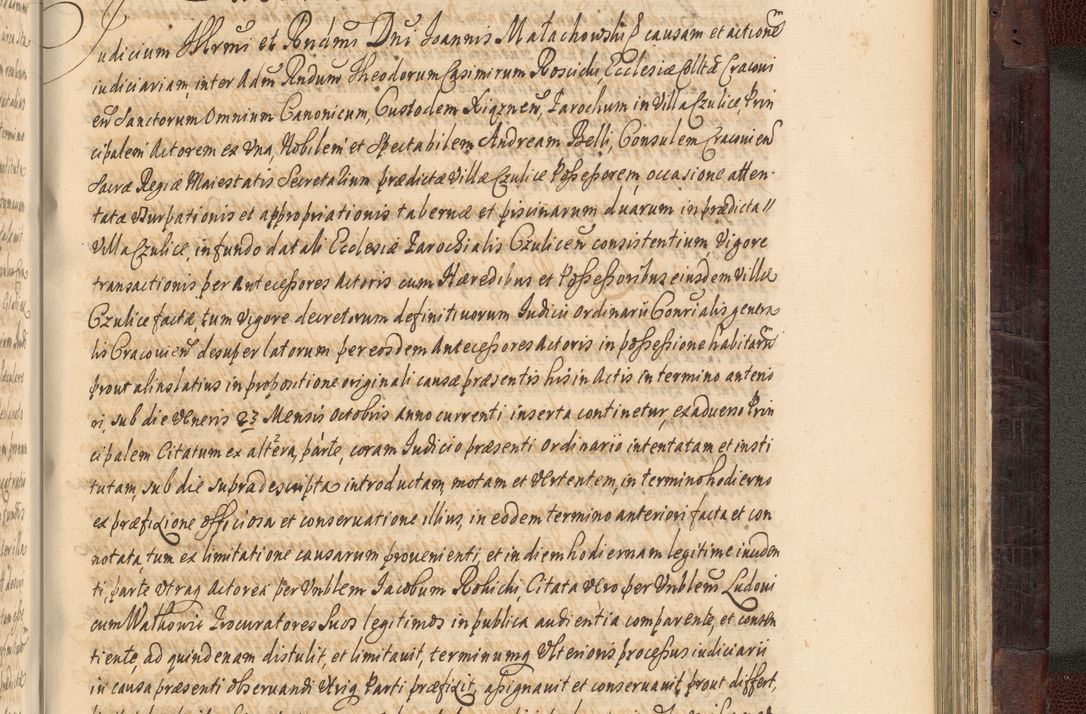 Judicium Illrmi et Rndmi Dni Joannis Małachowski ꝑ causam et actionē
iudiciariam, inter Adm Rndum Theodorum Casimirum Roscicki Ecclesiæ Colltæ Cracovi
en Sanctorum Omnium Canonicum, Custodem Xiqznen, Parochum in Villa Czulice, Prin
cipalem Actorem ex Una, Nobilem et Spectabilem Andream Belli, Consulem Cracovien
Sacræ Regiæ Maiestatis Secretarium prædictæ Villæ Czulice Possessorem, occasione atten
tatæ Usurpationis et appropriationis tabernæ et piscinarum duarum in prædicta //
Villa Czulice, in fundo datali Ecclesiæ Parochialis Czulicen consistentium Vigore
transactionis per Antecessores Actoris cum Hæredibus et Possessoribus eiusdem Villæ
Czulice factæ, tum Vigore decretorum definitivorum Judicii Ordinarii Consrialis genera
lis Cracovien desuper latorum per eosdem Antecessores Actoris in possessione habitarū
prout alias latius in propositione originali causæ præsentis his in Actis in termino anterio
ri, sub die Veneris 23 Mensis Octobris anno currenti inserta continetur, ex adverso Prin
cipalem Citatum ex altera, parte, coram Judicio præsenti Ordinario intentatam et insti
tutam, sub die supradescripta introductam, motam et Vertentem, in termino hodierno
ex præfixione officiosa et conservatione illius, in eodem termino anteriori facta et con
notata, tum ex limitatione causarum provenienti, et in diem hodiernam legitime inciden
ti, parte Utraq Actorea per Vnblem Jacobum Rohicki, Citata Vero per Vnblem Ludovi
cum Wathowic Procuratores Suos legitimos in publica audientia comparente, et consen
tiente, ad quindenam distulit, et limitavit, terminumq Ulterioris processus iudiciarii
in causa præsenti observandi Utriq Parti præfixit, assignavit et conservavit, prout differt,